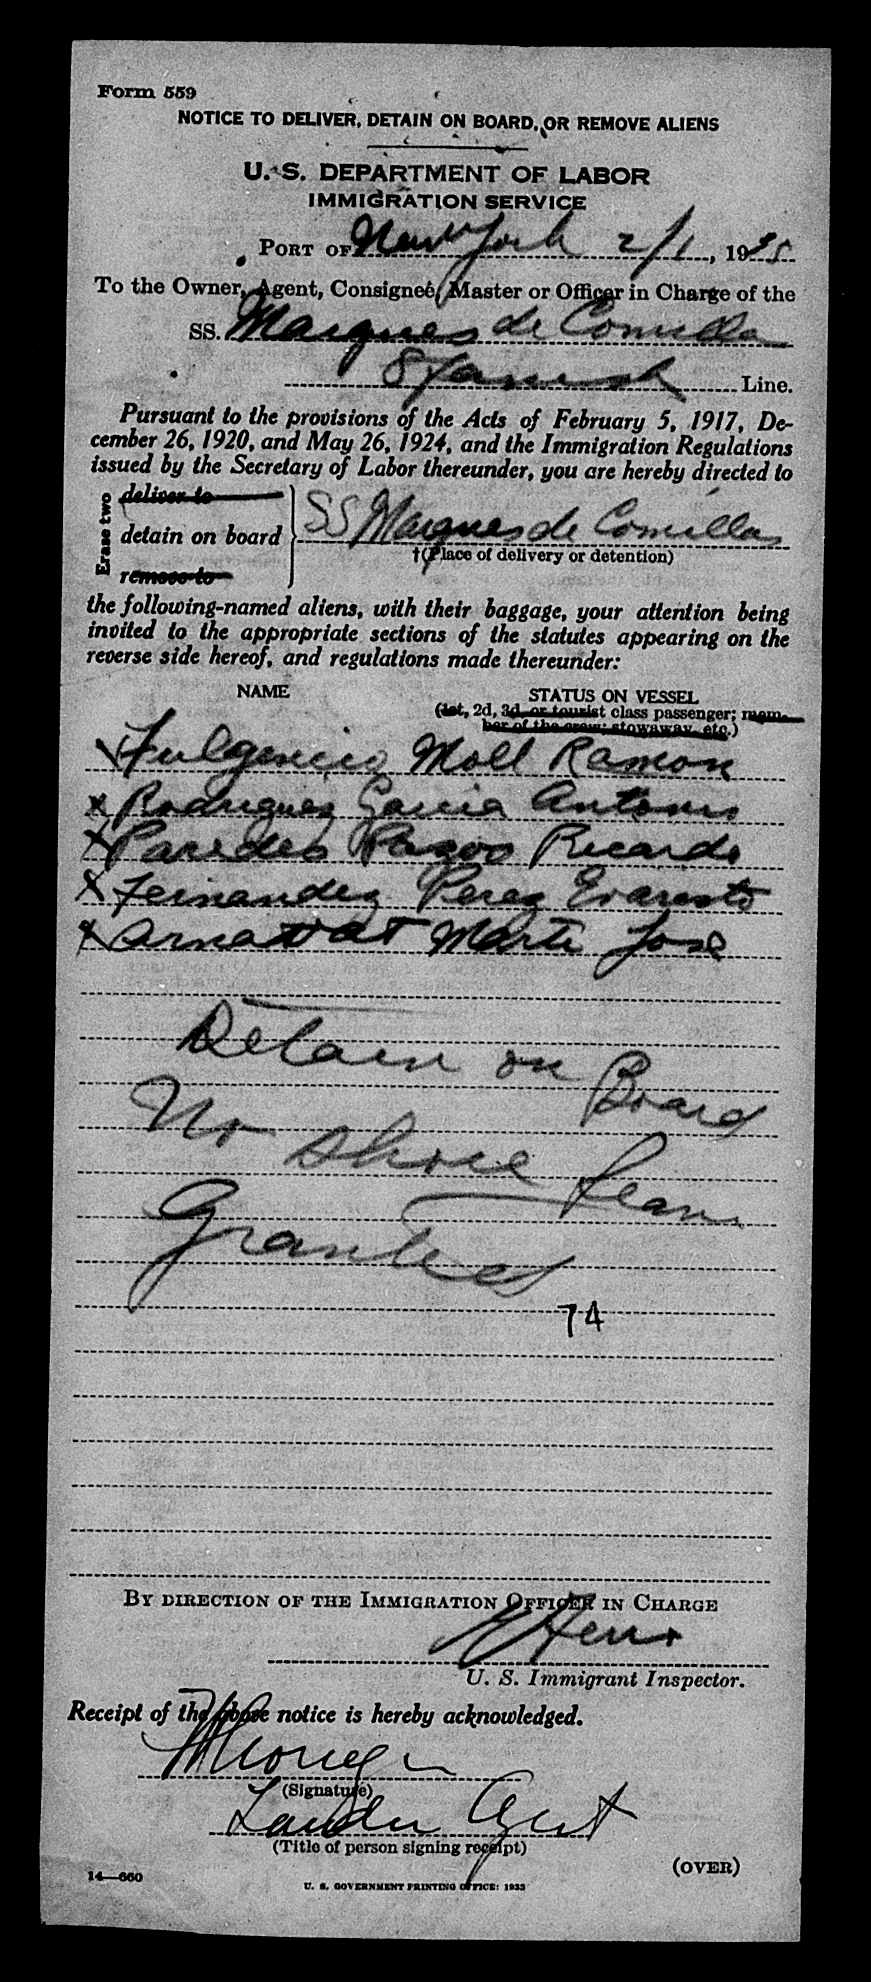 Form 559
NOTICE TO DELIVER, DETAIN ON BOARD, OR REMOVE ALIENS
U. S. DEPARTMENT OF LABOR
IMMIGRATION SERVICE
PORT OF New York 2/1, 1935
To the Owner, Agent, Consignee, Master or Officer in Charge of the
SS. Marques de Comilla
Spanish Line.
Pursuant to the provisions of the Acts of February 5, 1917, De-
cember 26, 1920, and May 26, 1924, and the Immigration Regulations
issued by the Secretary of Labor thereunder, you are hereby directed to
Erase two
deliver to
detain on board
remove to
SS Marques de Comillas
†(Place of delivery or detention)
the following-named aliens, with their baggage, your attention being
invited to the appropriate sections of the statutes appearing on the
reverse side hereof, and regulations made thereunder:
NAME
STATUS ON VESSEL
(1st, 2d, 3d, or tourist class passenger; mem-
ber of the crew; stowaway, etc.)
Fulgencio Moll Ramon
x Rodriguez Garcia Antonio
x Paredes Pazos Ricardo
x Fernandez Perez Evaristo
x Arnat Marti Jose
Detain on Board
No Shore Leave
Granted
74
BY DIRECTION OF THE IMMIGRATION OFFICER IN CHARGE
U. S. Immigrant Inspector.
Receipt of the above notice is hereby acknowledged.
(Signature)
Agent
(Title of person signing receipt)
(OVER)
14—660
U. S. GOVERNMENT PRINTING OFFICE: 1933